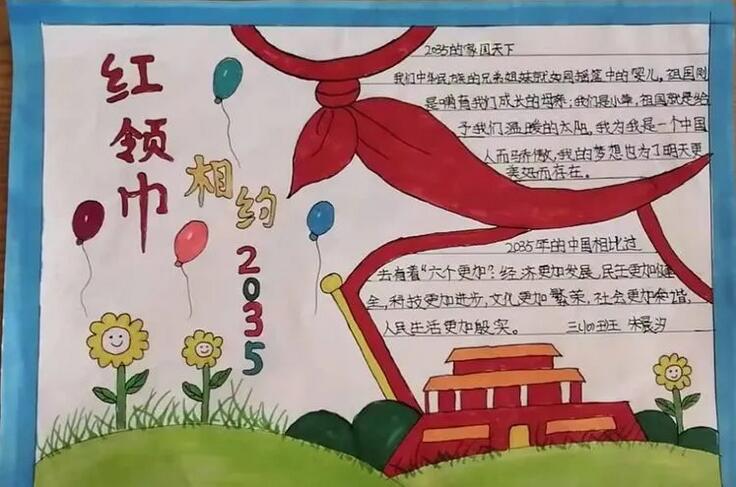 红领巾
相约
2035
2035的家国天下
我们中华民族的兄弟姐妹就如同摇篮中的婴儿,祖国则
是哺育我们成长的母亲;我们是小草,祖国就是给
予我们温暖的太阳,我为我是一个中国
人而骄傲,我的梦想也为了明天更
美好而存在。
2035年的中国相比过
去有着“六个更加”:经济更加发展、民主更加健
全,科技更加进步,文化更加繁荣,社会更加和谐,
人民生活更加殷实。